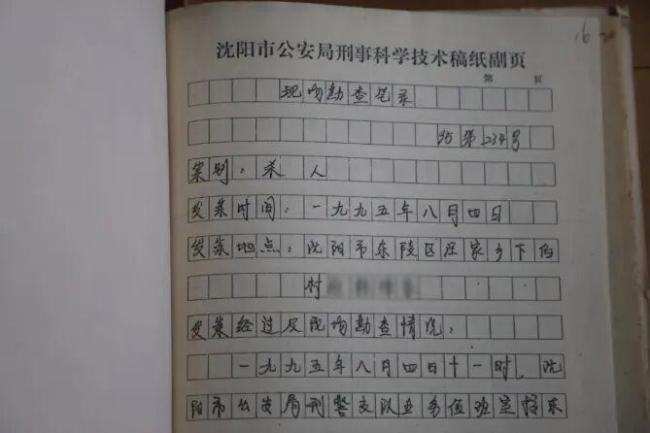 16
沈阳市公安局刑事科学技术稿纸副页
第 页
现场勘查笔录
95第234号
案别:杀人
发案时间:一九九五年八月四日
发案地点:沈阳市东陵区汪家乡下伯
村
发案经过及现场勘查情况:
一九九五年八月四日十一时,沈
阳市公安局刑警支队业务值班室接东